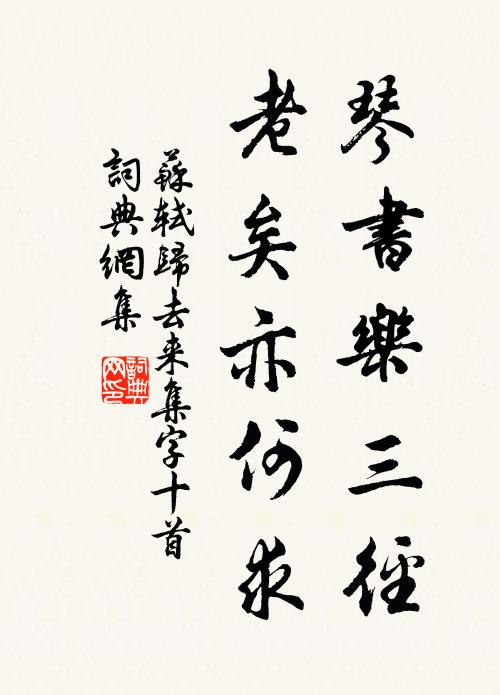 琴書樂三徑
老矣亦何求
蘇軾歸去来集字十首
詞典網集
詞典
网印